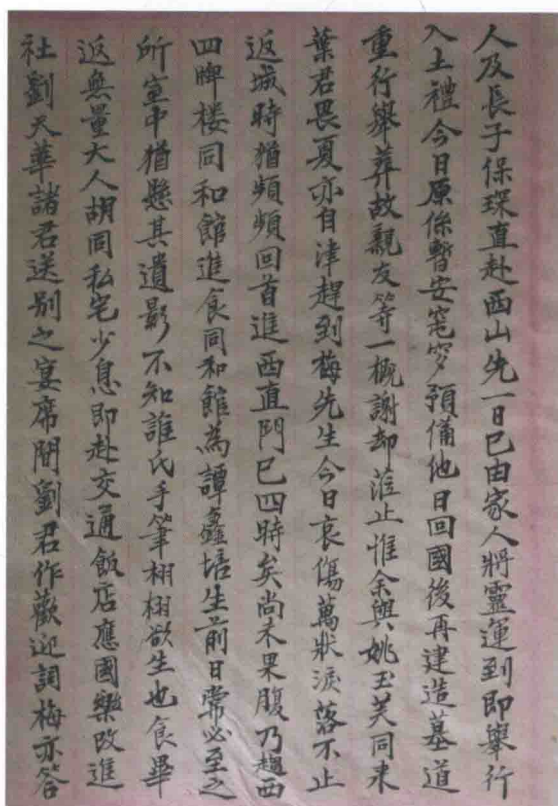 人及長子保琛直赴西山先一日已由家人將靈運到即舉行
入土禮今日原係暫安窀穸預備他日回國後再建造墓道
重行舉葬故親友等一概謝却蒞止惟余與姚玉芙同來
葉君畏夏亦自津趕到梅先生今日哀傷萬狀淚落不止
返城時猶頻頻回首進西直門已四時矣尚未果腹乃趨西
四牌楼同和館進食同和館為譚鑫培生前日常必至之
所室中猶懸其遺影不知誰氏手筆栩栩欲生也食畢
返無量大人胡同私宅少息即赴交通飯店應國樂改進
社劉天華諸君送別之宴席間劉君作歡迎詞梅亦答